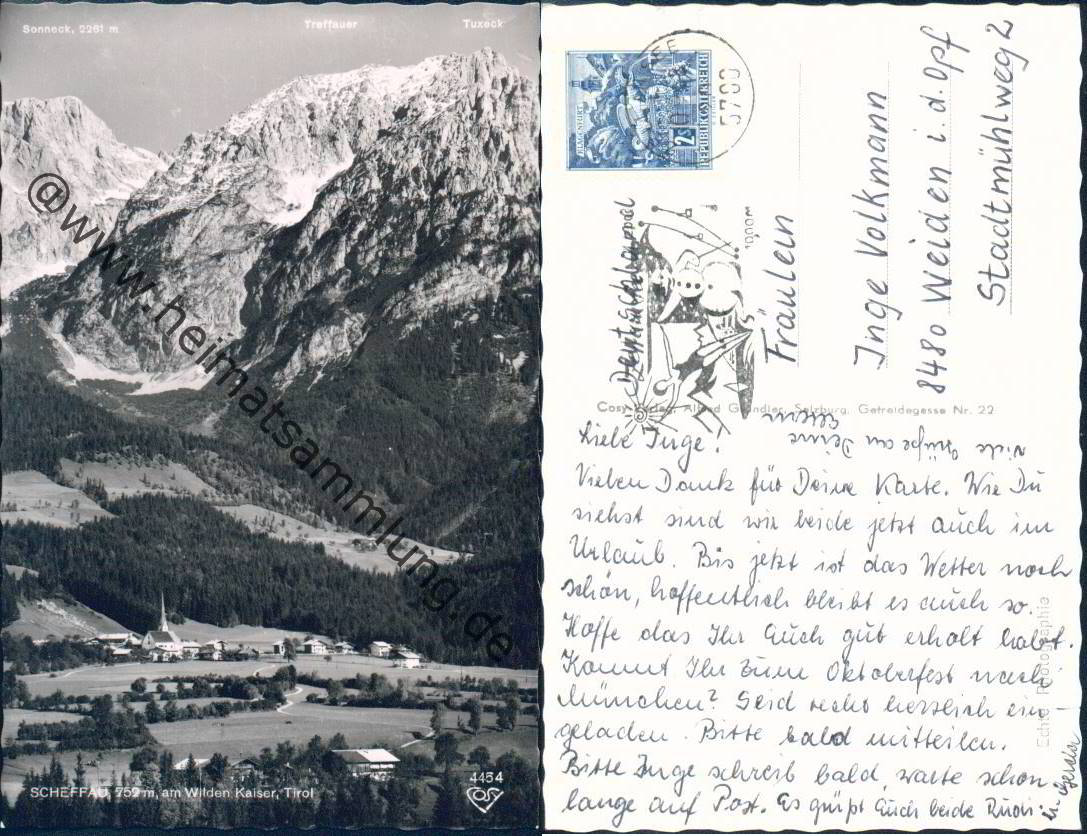 Sonneck, 2261 m
Treffauer
Tuxeck
@www.heimatsammlung.de
SCHEFFAU, 752 m, am Wilden Kaiser, Tirol
4454
COSY
KLAGENFURT
2 S
REPUBLIK ÖSTERREICH
5700
10.000 M
Fräulein
Inge Volkmann
8480 Weiden i. d. Opf
Stadtmühlweg 2
Cosy Verlag, Alfred Gründler, Salzburg, Getreidegasse Nr. 22
Viele Grüße an Deine
Eltern
Liebe Inge!
Vielen Dank für Deine Karte. Wie Du
siehst sind wir beide jetzt auch im
Urlaub. Bis jetzt ist das Wetter noch
schön, hoffentlich bleibt es auch so.
Hoffe das Ihr Euch gut erholt habt.
Kommt Ihr zum Oktoberfest nach
München? Seid recht herzlich ein-
geladen. Bitte bald mitteilen.
Bitte Inge schreib bald, warte schon
lange auf Post. Es grüßt Euch beide Rudi
Echte Photographie